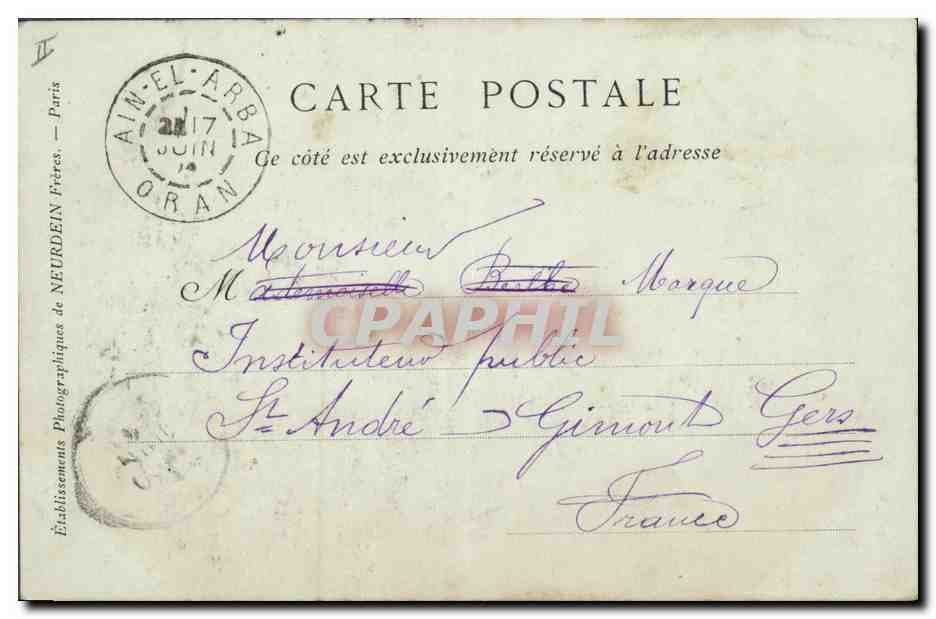 II
CARTE POSTALE
Ce côté est exclusivement réservé à l'adresse
AIN-EL-ARBA
17
JUIN
ORAN
Monsieur
M ademoiselle Berthe Marque
CPAPHIL
Instituteur public
St André - Gimont Gers
France
Établissements Photographiques de NEURDEIN Frères. — Paris